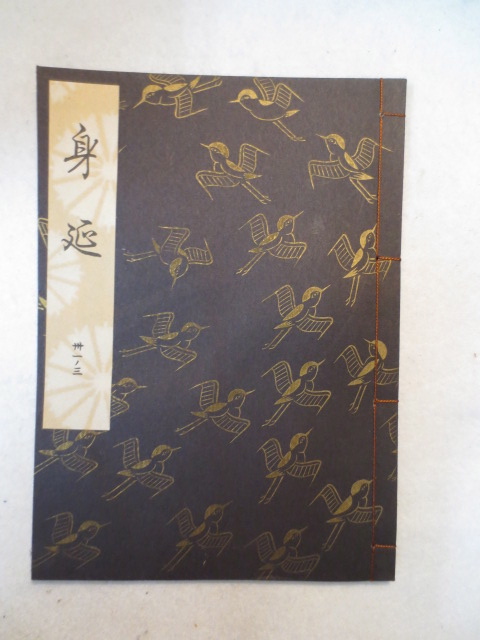 身延
卅一ノ三